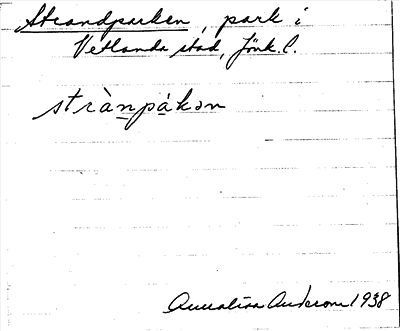 Strandparken, park i
Vetlanda stad, Jönk. l.
strànpákən
Annalisa Anderson 1938